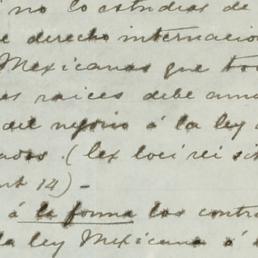 i no lo estudias de
e derecho internacio
Mexicanas que
es raices debe
del negocio á la ley
ados. (lex loci rei si
14) –
á la forma los contra
la ley Mexicana ó